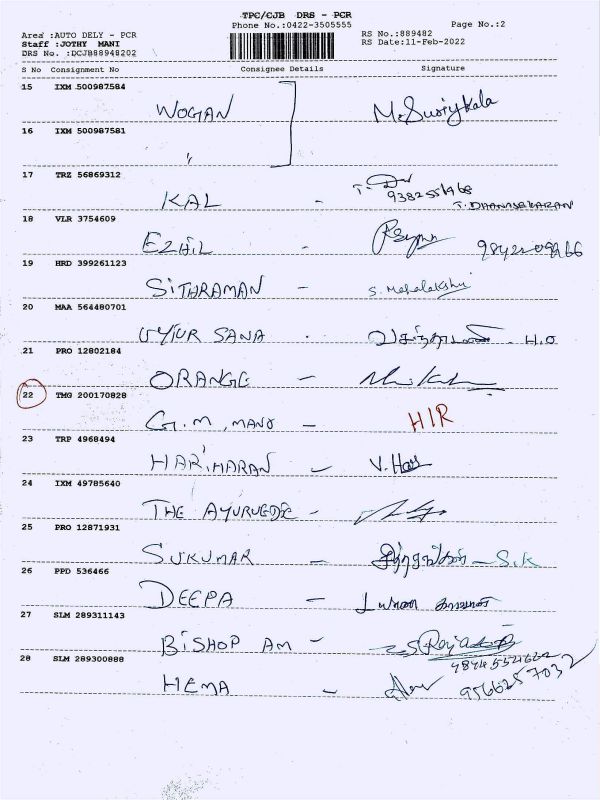 TPC/CJB DRS - PCR
Phone No.:0422-3505555
Page No.:2
Area :AUTO DELY - PCR
Staff :JOTHY MANI
DRS No. :DCJB88948202
RS No.:889482
RS Date:11-Feb-2022
S No Consignment No Consignee Details Signature
15 IXM 500987584
WOGAN
16 IXM 500987581
"
17 TRZ 56869312
KAL -
T. DHANASEKARAN
18 VLR 3754609
EZHIL -
19 HRD 399261123
SITHRAMAN - S. Mahalakshmi
20 MAA 564480701
UYIUR SANA . H.O
21 PRO 12802184
ORANGE -
22 TMG 200170828
G.M, MANO - HIR
23 TRP 4968494
HARIHARAN - V. Hari
24 IXM 49785640
THE AYURVEDIC -
25 PRO 12871931
SUKUMAR - - S.K
26 PPD 536466
DEEPA -
27 SLM 289311143
BISHOP AM -
28 SLM 289300888
HEMA - 9566257032